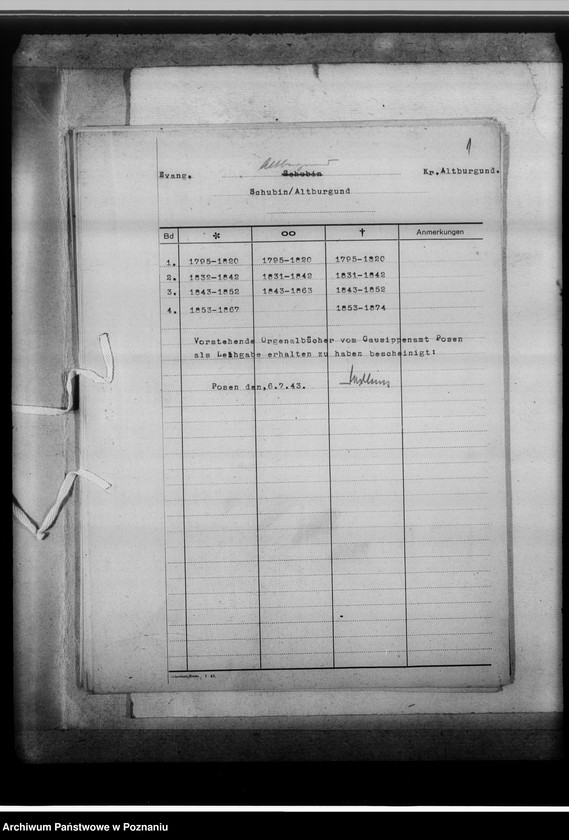 1
Altburgund
Evang. Schubin Kr. Altburgund.
Schubin/Altburgund
Bd * oo † Anmerkungen
1. 1795-1820 1795-1820 1795-1820
2. 1832-1842 1831-1842 1831-1842
3. 1843-1852 1843-1863 1843-1852
4. 1853-1867 1853-1874
Vorstehende Orgenalbücher vom Gausippenamt Posen
als Leihgabe erhalten zu haben bescheinigt:
Posen den, 6.7.43.
Archiwum Państwowe w Poznaniu